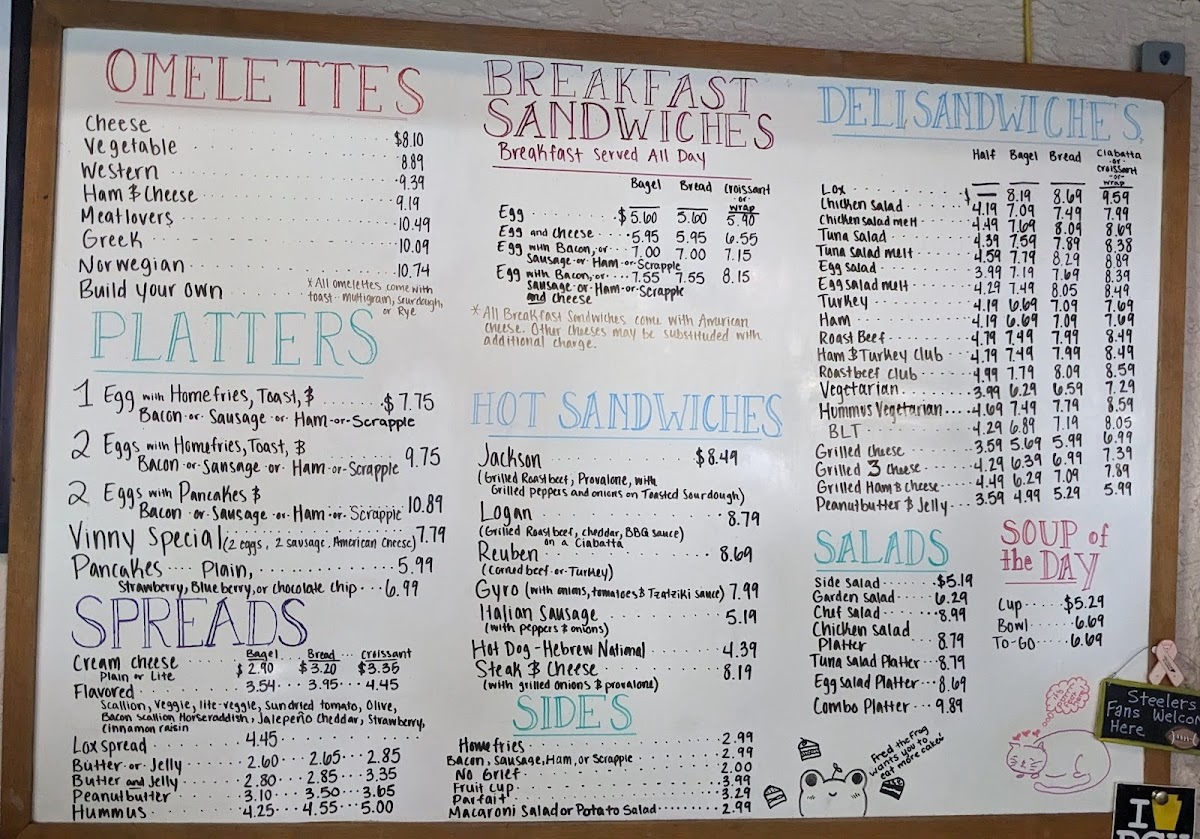 OMELETTES
Cheese $8.10
Vegetable 8.89
Western 9.39
Ham & Cheese 9.19
Meatlovers 10.49
Greek 10.09
Norwegian 10.74
Build Your Own
*All omelettes come with
toast - multigrain, sourdough,
or Rye
PLATTERS
1 Egg with Homefries, Toast, &
Bacon-or-Sausage-or-Ham-or-Scrapple $7.75
2 Eggs with Homefries, Toast, &
Bacon-or-Sausage-or-Ham-or-Scrapple 9.75
2 Eggs with Pancakes &
Bacon-or-Sausage-or-Ham-or-Scrapple 10.89
Vinny Special (2 eggs, 2 sausage, American Cheese) 7.79
Pancakes Plain, 5.99
Strawberry, Blueberry, or chocolate Chip 6.99
SPREADS
Bagel Bread Croissant
Cream cheese $2.90 $3.20 $3.35
Plain or Lite
Flavored 3.54 3.95 4.45
Scallion, Veggie, lite-veggie, Sundried tomato, Olive,
Bacon scallion Horseraddish, Jalepeño Cheddar, Strawberry,
Cinnamon raisin
Lox spread 4.45
Butter-or-Jelly 2.60 2.65 2.85
Butter and Jelly 2.80 2.85 3.35
Peanutbutter 3.10 3.50 3.65
Hummus 4.25 4.55 5.00
BREAKFAST
SANDWICHES
Breakfast Served All Day
Bagel Bread Croissant
-or-
wrap
Egg $5.60 5.60 5.90
Egg and cheese 5.95 5.95 6.55
Egg with Bacon,-or- 7.00 7.00 7.15
Sausage-or-Ham-or-Scrapple
Egg with Bacon,-or- 7.55 7.55 8.15
Sausage-or-Ham-or-Scrapple
and cheese
*All Breakfast Sandwiches come with American
cheese. Other cheeses may be substituted with
additional charge.
HOT SANDWICHES
Jackson $8.49
(Grilled Roastbeef, Provalone, with
Grilled peppers and onions on Toasted Sourdough)
Logan 8.79
(Grilled Roastbeef, cheddar, BBQ sauce)
on a Ciabatta
Reuben 8.69
(Corned beef-or-Turkey)
Gyro (with onions, tomatoes & Tzatziki sauce) 7.99
Italian Sausage 5.19
(with peppers & onions)
Hot Dog - Hebrew National 4.39
Steak & Cheese 8.19
(with grilled onions & provalone)
SIDES
Homefries 2.99
Bacon, Sausage, Ham, or Scrapple 2.99
No Grief 2.00
Fruit Cup 3.99
Parfait 3.29
Macaroni Salad or Potato Salad 2.99
DELI SANDWICHES
Half Bagel Bread Ciabatta
-or-
croissant
-or-
wrap
Lox $— 8.19 8.69 9.59
Chicken Salad 4.19 7.09 7.49 7.99
Chicken salad melt 4.49 7.69 8.09 8.69
Tuna Salad 4.39 7.59 7.89 8.38
Tuna salad melt 4.59 7.79 8.29 8.89
Egg salad 3.99 7.19 7.69 8.39
Egg salad melt 4.29 7.49 8.05 8.49
Turkey 4.19 6.69 7.09 7.69
Ham 4.19 6.69 7.09 7.69
Roast Beef 4.79 7.49 7.99 8.49
Ham & Turkey club 4.79 7.49 7.99 8.49
Roastbeef club 4.99 7.79 8.09 8.59
Vegetarian 3.99 6.29 6.59 7.29
Hummus Vegetarian 4.69 7.49 7.79 8.59
BLT 4.29 6.89 7.19 8.05
Grilled cheese 3.59 5.69 5.99 6.99
Grilled 3 cheese 4.29 6.39 6.99 7.39
Grilled Ham & cheese 4.49 6.29 7.09 7.89
Peanutbutter & Jelly 3.59 4.99 5.29 5.99
SALADS
Side salad $5.19
Garden salad 6.29
Chef salad 8.99
Chicken Salad
Platter 8.79
Tuna Salad Platter 8.79
Egg Salad Platter 8.69
Combo Platter 9.89
SOUP of
the DAY
Cup $5.29
Bowl 6.69
To-Go 6.69
Fred the Frog
wants you to
eat more cake!
Steelers
Fans Welco
Here
I